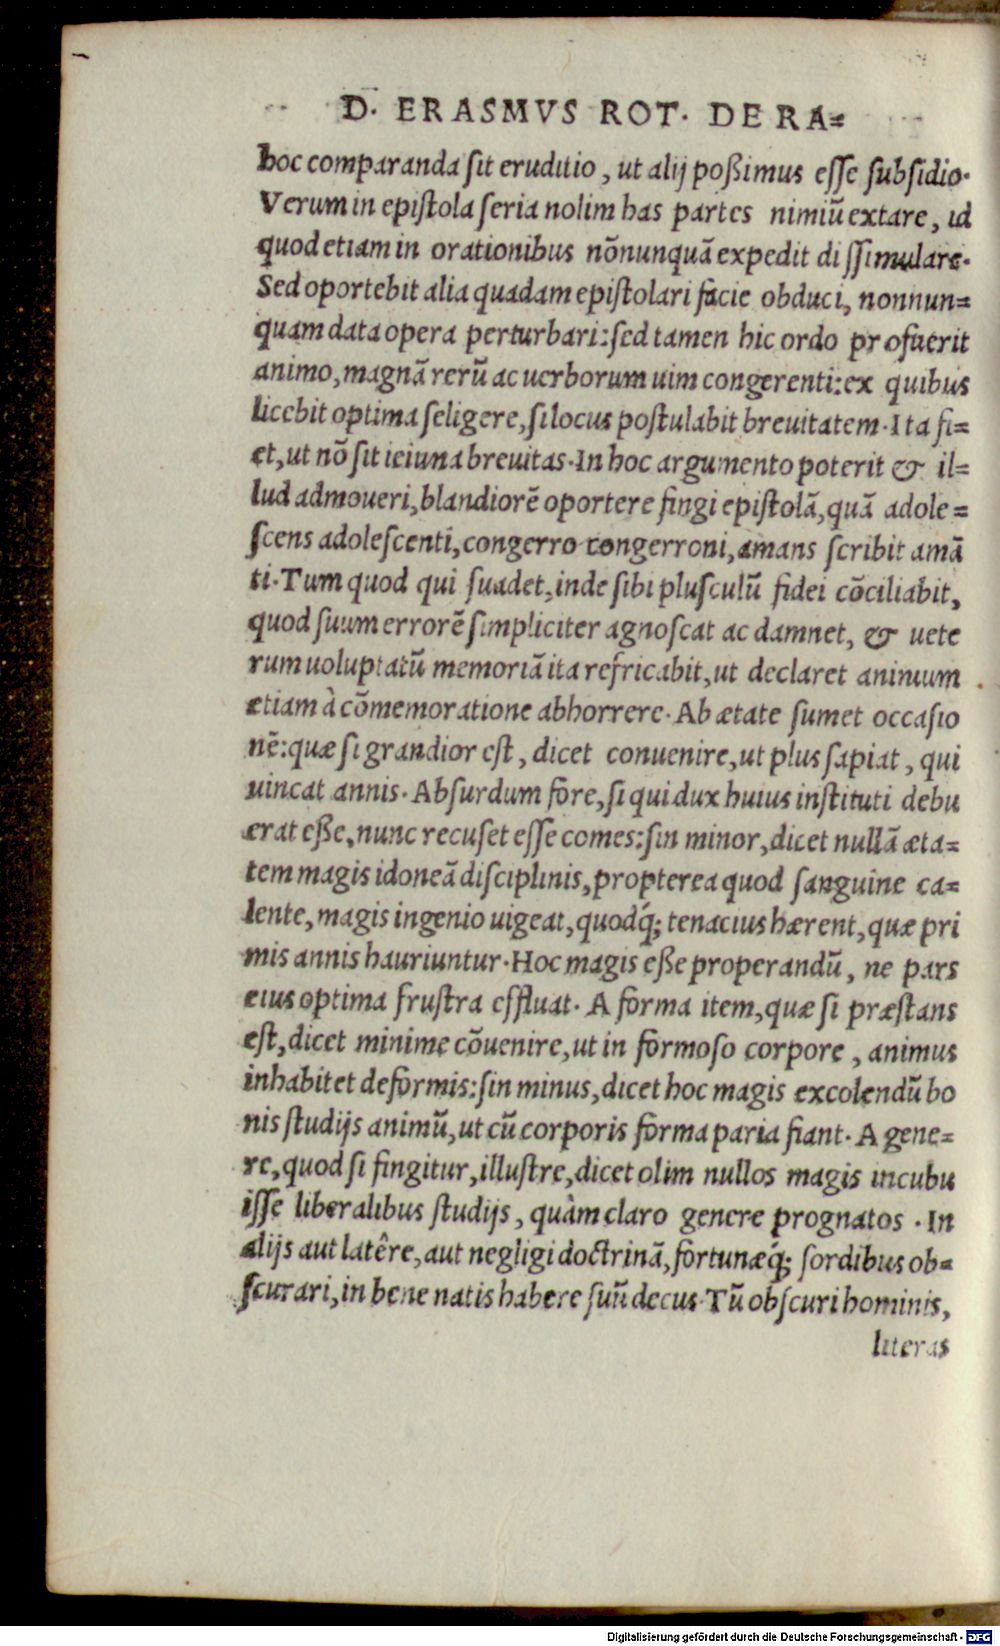 D. ERASMVS ROT. DE RA=
hoc comparanda ſit eruditio, ut alij poßimus eſſe ſubſidio.
Verum in epiſtola ſeria nolim has partes nimiũ extare, id
quod etiam in orationibus nõnunquã expedit diſſimulare.
Sed oportebit alia quadam epiſtolari facie obduci, nonnun=
quam data opera perturbari: ſed tamen hic ordo profuerit
animo, magnã rerũ ac uerborum uim congerenti: ex quibus
licebit optima ſeligere, ſi locus poſtulabit breuitatem. Ita fi=
et, ut nõ ſit ieiuna breuitas. In hoc argumento poterit & il=
lud admoueri, blandiorẽ oportere fingi epiſtolã, quã adole=
ſcens adoleſcenti, congerro congerroni, amans ſcribit amã
ti. Tum quod qui ſuadet, inde ſibi pluſculũ fidei cõciliabit,
quod ſuum errorẽ ſimpliciter agnoſcat ac damnet, & uete
rum uoluptatũ memoriã ita refricabit, ut declaret animum
etiam à cõmemoratione abhorrere. Ab ætate ſumet occaſio
nẽ: quæ ſi grandior eſt, dicet conuenire, ut plus ſapiat, qui
uincat annis. Abſurdum fore, ſi qui dux huius inſtituti debu
erat eße, nunc recuſet eſſe comes: ſin minor, dicet nullã æta=
tem magis idoneã diſciplinis, propterea quod ſanguine ca=
lente, magis ingenio uigeat, quodq́; tenacius hærent, quæ pri
mis annis hauriuntur. Hoc magis eße properandũ, ne pars
eius optima fruſtra effluat. A forma item, quæ ſi præſtans
eſt, dicet minime cõuenire, ut in formoſo corpore, animus
inhabitet deformis: ſin minus, dicet hoc magis excolendũ bo
nis ſtudijs animũ, ut cũ corporis forma paria fiant. A gene=
re, quod ſi fingitur, illuſtre, dicet olim nullos magis incubu
iſſe liberalibus ſtudijs, quàm claro genere prognatos. In
alijs aut latêre, aut negligi doctrinã, fortunæq́; ſordibus ob=
ſcurari, in bene natis habere ſuũ decus. Tũ obſcuri hominis,
literas
Digitalisierung gefördert durch die Deutsche Forschungsgemeinschaft - DFG